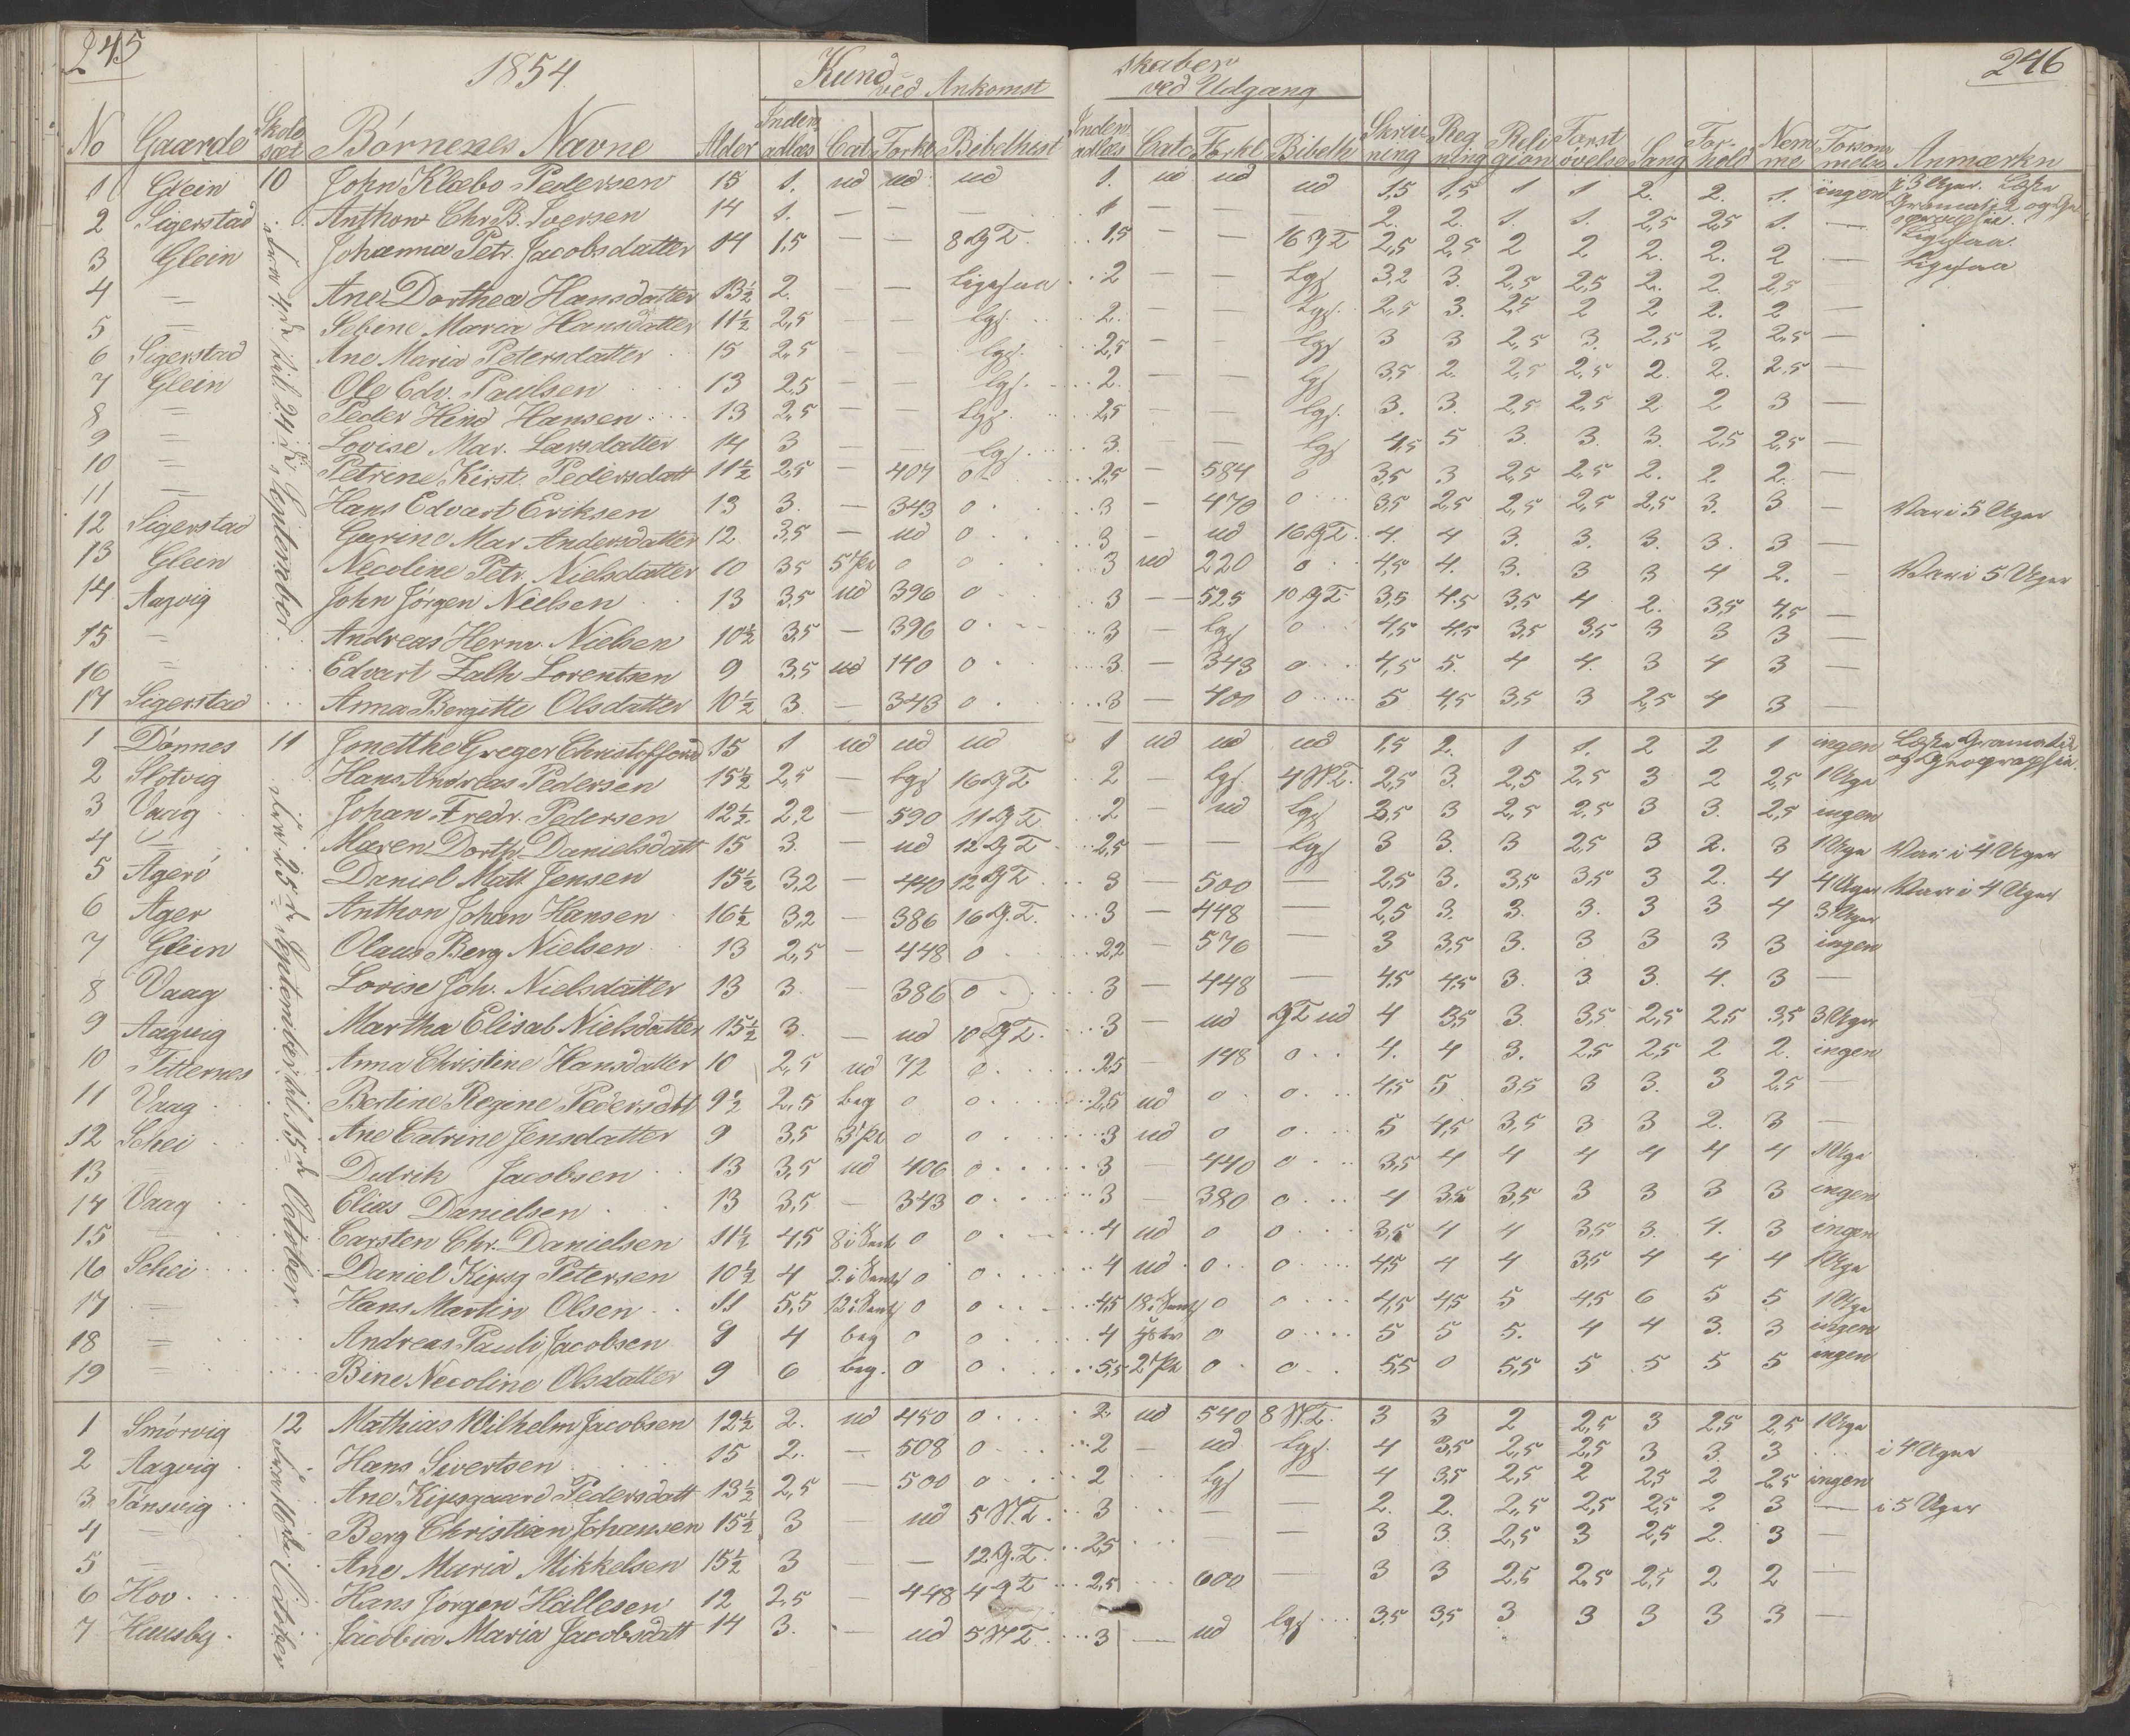 245
1854
Kund skaber
ved Ankomst ved Udgang
246
No Gaarde Skole sæt Börnenes Navne Alder Inden adlæs Cat Forkl Bibelhist Inden adlæs Catc Forkl Bibelh Skriv ning Reg ning Reli gion Forst övelse Sang For hold Nem me Forsøm melse Anmærkn
1 Glein 10 John Klæbo Pedersen 15 1. ud ud ud 1. ud ud ud 1,5 1,5 1 1 2. 2. 1. ingen i 3 Uger. Læste Gramatik og Geographie
2 Sigerstad Anthon Chr B. Iversen 14 1. — — — 1 — — — 2. 2. 1 1. 2,5 2,5 1. — Ligesaa.
3 Glein Johanna Petr. Jacobsdatter 14 1,5 — — 8 G T. 1,5 — — 16 G T 2,5 2,5 2 2 2. 2. 2 — Ligesaa
4 = Ane Dorthea Hansdatter 13½ 2. — — ligesaa 2 — — lgs 3,2 3. 2,5 2,5 2. 2. 2,5 —
5 = Sebine Maria Hansdatter 11½ 2,5 — — lgs. 2. — — lgs. 2,5 3. 2,5 2 2 2. 2 —
6 Sigerstad Ane Maria Petersdatter 15 2,5 — — lgs. 2,5 — — lgs 3 3 2,5 3. 2,5 2. 2,5 —
7 Glein Ole Edv. Paulsen 13 2,5 — — lgs. 2. — — lgs 3,5 2. 2,5 2,5 2. 2. 2.5 —
8 = Peder Hind Hansen 13 2,5 — — lgs. 2,5 — — lgs. 3. 3. 2,5 2,5 2 2 3 —
9 = Lovise Mar. Larsdatter 14 3 — — lgs. 3. — — lgs 4,5 5 3. 3. 3. 2,5 2,5 —
10 = Petrine Kirst. Pedersdatt 11½ 2,5 — 404 0 2,5 — 584 0 3,5 3 2,5 2,5 2. 2. 2. —
11 = Hans Edvart Eriksen 13 3. — 343 0 3 — 470 0 3,5 2,5 2,5 2,5 2,5 3. 3 — Var i 5 Uger
12 Sigerstad Gurine Mar Andersdatter 12 3,5 — ud 0 3 — ud 16 G T. 4. 4 3. 3. 3. 3. 3 —
13 Glein Necoline Petr. Nielsdatter 10 3,5 5 Pr 0 0 3 ud 220 0 4,5 4. 3. 3 3 4 2. — Var i 5 Uger
14. Aagvig John Jörgen Nielsen 13 3,5 ud 396 0 3 — 525 10 G T. 3,5 4.5 3,5 4 2. 3,5 4,5 —
15 = Andreas Herm. Nielsen 10½ 3,5 — 396 0 3 — lgs 0 4,5 4,5 3,5 3,5 3 3 3 —
16 = Edvart Zalh Lorentsen 9 3,5 ud 140 0 3. — 343 0 4,5 5. 4 4. 3 4 3 —
17 Sigerstad Anna Bergitte Olsdatter 10½ 3 — 343 0 3 — 400 0 5 4,5 3,5 3 2,5 4 3 —
fra 4de til 24de September.
1 Dönnes 11 Jonetthe Greger Christoffersd 15 1 ud ud ud 1 ud ud ud 1,5 2. 1 1. 2 2 1 ingen Læste Gramatik og Geographie.
2 Slotvig Hans Andreas Pedersen 15½ 2,5 — lgs 16 G T 2 — lgs. 4 N T. 2,5 3. 2,5 2,5 3 2 2,5 1 Uge
3 Vaag Johan Fredr. Pedersen 12½ 2,2 — 590 11 G T 2 — ud lgs 3,5 3 2,5 2,5 3 3. 2,5 ingen
4 = Maren Dorth. Danielsdatt 15 3. — ud 12 G T 2,5 — — lgs 3 3. 3 2,5 3 2. 3 1 Uge Var i 4 Uger
5 Agerö Daniel Matt Jensen 15½ 3,2 — 440 12 G T 3 — 500 — 2,5 3. 3,5 3,5 3 2. 4 4 Uger Var i 4 Uger
6 Ager Anthon Johan Hansen 16½ 3,2 — 386 16 G. T. 3 — 448 — 2,5 3. 3. 3. 3 3 4 3 Uger
7 Glein Olaus Berg Nielsen 13 2,5 — 448 0 2,2 — 576 — 3 3,5 3. 3 3 3 3 ingen
8 Vaag Lovise Joh. Nielsdatter 13 3. — 386 0 3 — 448 — 4,5 4,5 3. 3. 3. 4. 3 —
9 Aagvig Martha Elisab Nielsdatter 15½ 3. — ud 10 G T. 3 — ud G T ud 4 3,5 3. 3,5 2,5 2,5 3,5 3 Uger
10 Titternes Anna Christine Hansdatter 10 2,5 ud 72 0 2,5 — 148 0 4. 4 3. 2,5 2,5 2 2. ingen
11 Vaag Bertine Regine Pedersdtt 9½ 2,5 beg 0 0 2,5 ud 0 0 4,5 5 3,5 3 3. 3 2,5 —
12 Schei Ane Catrine Jensdatter 9 3,5 3 Pr 0 0 3 ud 0 0 5 4,5 3,5 3 3 2. 3 —
13 = Didrik Jacobsen 13 3,5 ud 406 0 3 — 440 0 3,5 4 4 4 4 4 4 1 Uge
14 Vaag Elias Danielsen 13 3,5 — 343 0 3 — 380 0 4 3,5 3,5 3 3 3 3 ingen
15 = Carsten Chr. Danielsen 11½ 4,5 0 0 4 ud 0 0 3,5 4 4 3,5 3. 4. 3 ingen
16 Schei Daniel Kipsg Petersen 10½ 4 0 0 4 ud 0 0 4,5 4 4 3,5 4 4 4 1 Uge
17 = Hans Martin Olsen 11 5,5 0 0 4,5 0 0 4,5 4,5 5 4,5 6 5 5 1 Uge
18 = Andreas Pauli Jacobsen 9 4 beg 0 0 4 0 0 5 5 5. 4 4 3. 3 ingen
19 = Bine Necoline Olsdatter 9 6 beg. 0 0 5,5 2 Pr 0 0 5,5 0 5,5 5 5 5 5 ingen
fra 25de September til 15de October
1 Smörvig 12 Mathias Wilhelm Jacobsen 12½ 2. ud 450 0 2. ud 540 8 N. T. 3 3 2 2,5 3 2,5 2,5 1 Uge
2 Aagvig Hans Sivertsen 15 2. — 508 0 2 — ud lgs. 4 3,5 2,5 2,5 3 3. 3 i 4 Uger
3 Tönsvig Ane Kipsgaard Pedersdatt 13½ 2,5 — 500 0 2 lgs — 4 3,5 2,5 2 2,5 2 2,5 ingen
4 = Berg Christian Johansen 15½ 3 — ud 5 N. T. 3 — — 2. 2. 2,5 2,5 2,5 2 3 — i 5 Uger
5 = Ane Maria Mikkelsen 15½ 3 — — 12 G. T. 2,5 — 3 3. 2,5 3 2,5 2. 3 —
6 Hov Hans Jörgen Hallesen 12 2,5 — 448 4 G T 2,5 600 — 3 3 2,5 2,5 2,5 2 2 —
7 Huusby Jacobia Maria Jacobsdatt 14 3. — ud 5 N T. 3 — ud lgs 3,5 3,5 3 3 3 3 3 —
fra 16de October